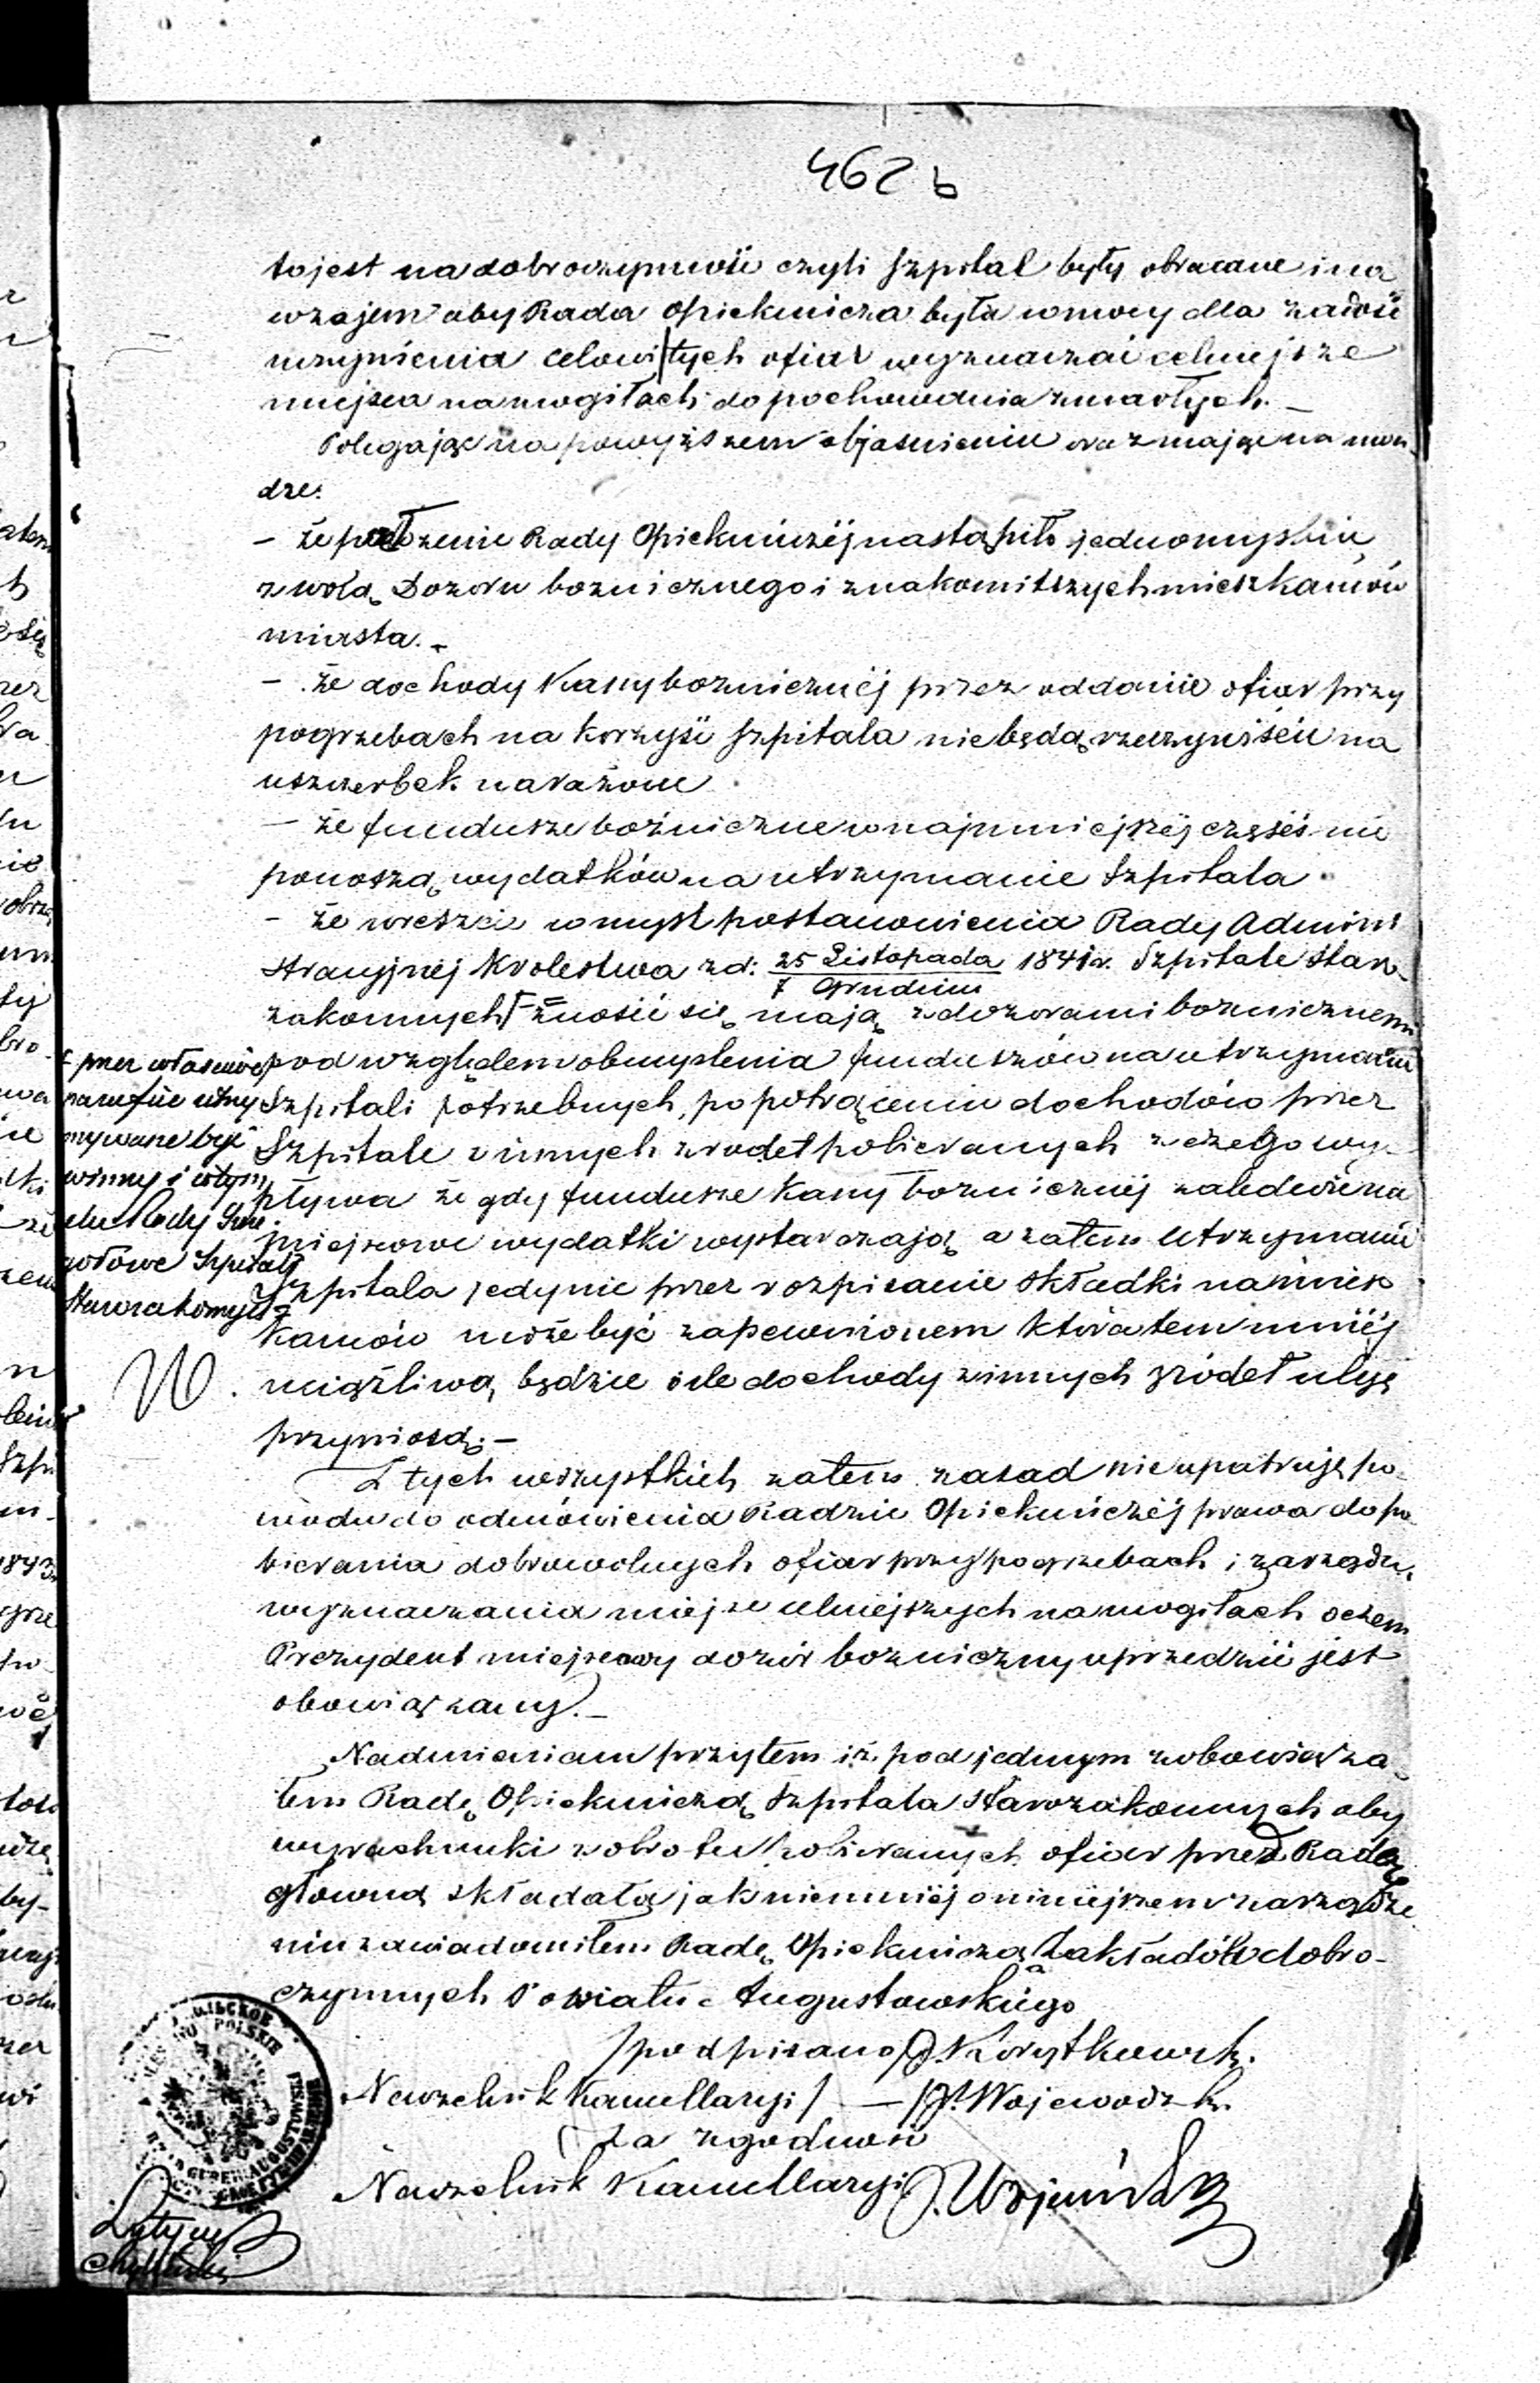 462 b
to jest na dobroczynność czyli Szpital były obracane i na
wzajem aby Rada Opiekuńcza była w mocy dla zadość
uczynienia celowi tych ofiar wyznaczać celniejsze
miejsca na mogiłach do pochowania zmarłych. –
Polegając na powyższem objaśnieniu oraz mając na uwa
dze:
– że położenie Rady Opiekuńczéj nastąpiło jednomyślnie
z wolą Dozoru bożnicznego i znakomitszych mieszkańców
miasta. –
– że dochody Kassy bożnicznéj przez oddanie ofiar przy
pogrzebach na korzyść Szpitala nie będą rzeczywiście na
uszczerbek narażone
– że fundusze bożniczne w najmniejszéj części nie
ponoszą wydatków na utrzymanie Szpitala
– że wreszcie w myśl postanowienia Rady Admini
stracyjnéj Królestwa z d: 25 Listopada / 7 Grudnia 1841 r. Szpitale Staro
zakonnych znosić się mają z dozorami bożnicznemi
pod względem obmyślenia funduszów na utrzymanie
Szpitali potrzebnych, po potrąceniu dochodów przez
Szpitale z innych źródeł pobieranych z czego wy-
pływa że gdy fundusze Kassy bożnicznéj zaledwie na
miejscowe wydatki wystarczają, a zatem utrzymanie
Szpitala jedynie przez rozpisanie składki na miesz
kańców może być zapewnionem która tem mniéj
uciążliwą będzie o ile dochody z innych źródeł ulgę
przyniosą. –
przez właściwe
parafie utrzy
mywane być
winny i w tym
celu Rady Szcze
gółowe Szpitali
Starozakonnych
Z tych wszystkich zatem zasad nie upatruję po-
wodu do odmówienia Radzie Opiekuńczéj prawa do po
bierania dobrowolnych ofiar przy pogrzebach i zarządu,
wyznaczania miejsc celniejszych na mogiłach o czem
Prezydent miejscowy dozór bożniczny uprzedzić jest
obowiązany. –
Nadmieniam przytem iż pod jednym zobowiąza-
łem Radę Opiekuńczą Szpitala Starozakonnych aby
wyrachunki z obrotu pobieranych ofiar przed Radą
główną składała, jak niemniéj o niniejszem zarządze
niu zawiadomiłem Radę Opiekuńczą Zakładów dobro-
czynnych Powiatu Augustowskiego
/podpisano/ J. Korytkowski.
Naczelnik Kancellaryi / – /J. Wojewodzki.
Za zgodność
Naczelnik Kancellaryi J.